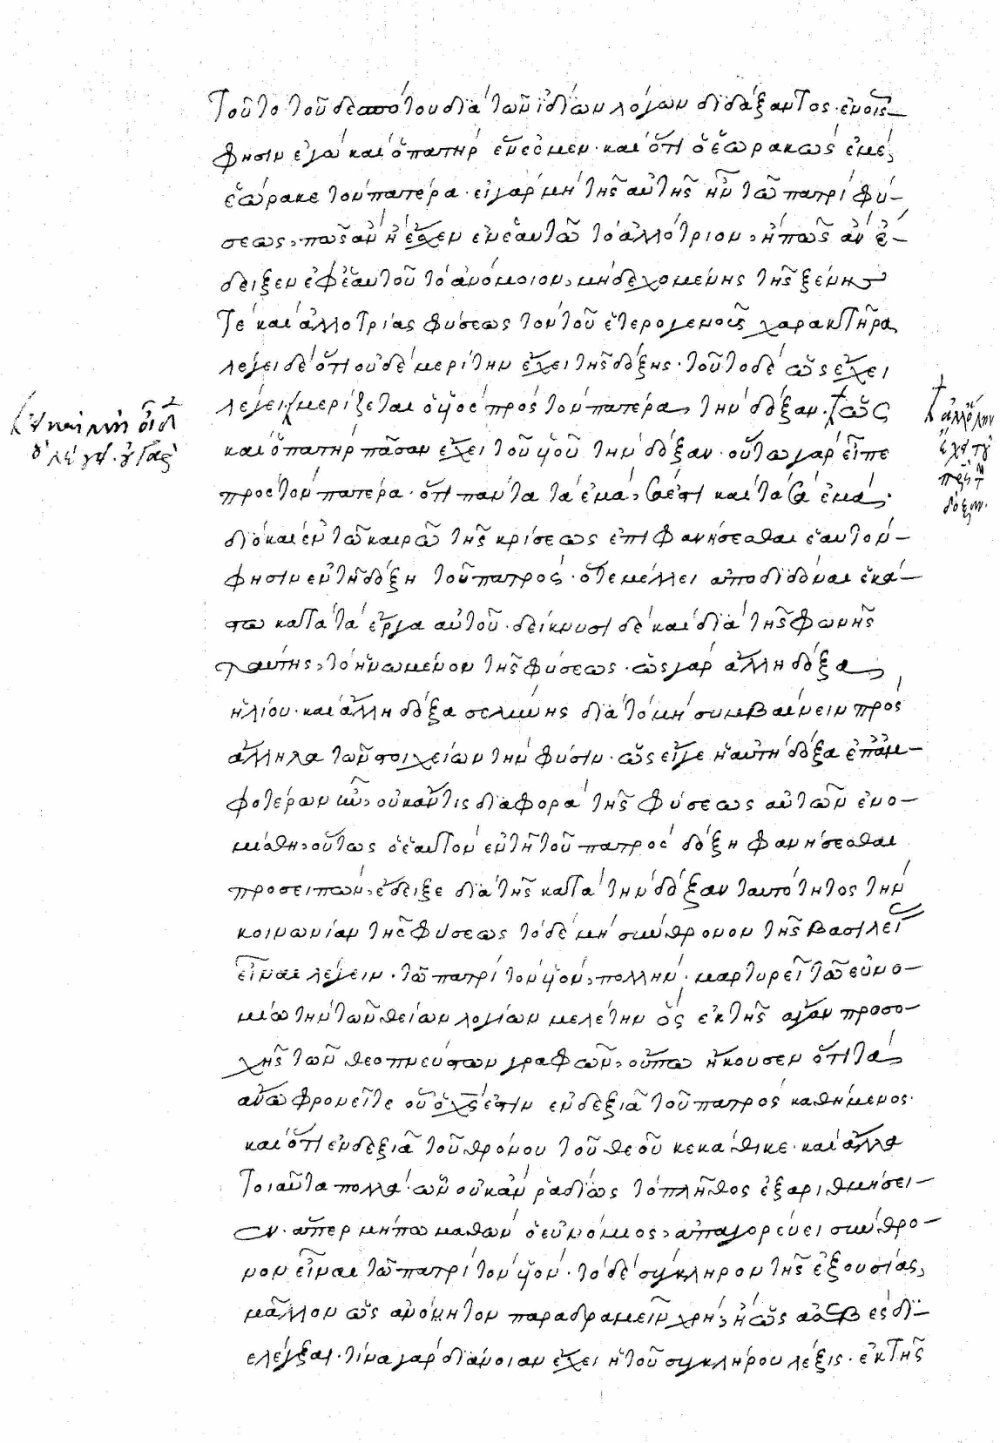 Τοῦτο τοῦ δεσπότου διὰ τῶν ἰδίων λόγων διδάξαντος· ἐν οἷς
φησιν ἐγὼ καὶ ὁ πατὴρ ἕν ἐσμεν· καὶ ὅτι ὁ ἑωρακὼς ἐμὲ,
ἑώρακε τὸν πατέρα· εἰ γὰρ μὴ τῆς αὐτῆς ἦν τῶ πατρὶ φύ-
σεως, πῶς ἂν ἢ εἶχεν ἐν ἑαυτῶ τὸ ἀλλότριον, ἢ πῶς ἂν ἔ-
δειξεν ἐφ' ἑαυτοῦ τὸ ἀνόμοιον, μὴ δεχομένης τῆς ξένης
τε καὶ ἀλλοτρίας φύσεως τὸν τοῦ ἑτερογενοῦς χαρακτῆρα
λέγει δὲ ὅτι οὐδὲ μεριστὴν ἔχει τῆς δόξης· τοῦτο δὲ ὡς ἔχει
λέγει μερίζεται ὁ υἱὸς πρὸς τὸν πατέρα, τὴν δόξαν· ὡς
καὶ ὁ πατὴρ πᾶσαν ἔχει τοῦ υἱοῦ τὴν δόξαν· οὕτω γὰρ εἶπε
πρὸς τὸν πατέρα· ὅτι πάντα τὰ ἐμὰ, σά ἐστι καὶ τὰ σὰ ἐμά·
διὸ καὶ ἐν τῶ καιρῶ τῆς κρίσεως ἐπιφανήσεσθαι ἑαυτόν
φησιν ἐν τῆ δόξη τοῦ πατρὸς· ὅτε μέλλει ἀποδιδόναι ἑκά-
στω κατὰ τὰ ἔργα αὐτοῦ· δείκνυσι δὲ καὶ διὰ τῆς φωνῆς
ταύτης, τὸ ἡνωμένον τῆς φύσεως· ὡς γὰρ ἄλλη δόξα
ἡλίου· καὶ ἄλλη δόξα σελήνης διὰ τὸ μὴ συμβαίνειν πρὸς
ἄλληλα τῶν στοιχείων τὴν φύσιν· ὡς εἴγε ἡ αὐτὴ δόξα ἐπ' ἀμ-
φοτέρων ἦν, οὐκ ἄν τις διαφορὰ τῆς φύσεως αὐτῶν ἐνο-
μίσθη, οὕτως ὁ ἑαυτὸν ἐν τῆ τοῦ πατρὸς δόξη φανήσεσθαι
προσειπὼν, ἔδειξε διὰ τῆς κατὰ τὴν δόξαν ταυτότητος τὴν
κοινωνίαν τῆς φύσεως τὸ δὲ μὴ σύνθρονον τῆς βασιλεί
εἶναι λέγειν· τῶ πατρὶ τὸν υἱὸν, πολλὴν· μαρτυρεῖ τῶ εὐνο-
μίω τὴν τῶν θείων λογίων μελέτην ὃς ἐκ τῆς ἄγαν προσο-
χῆς τῶν θεοπνεύστων γραφῶν, οὔπω ἤκουσεν ὅτι τὰ
ἄνω φρονεῖτε οὗ ὁ χς ἐστιν ἐν δεξιᾶ τοῦ πατρὸς καθήμενος·
καὶ ὅτι ἐν δεξιᾶ τοῦ θρόνου τοῦ θεοῦ κεκάθικε· καὶ ἄλλα
τοιαῦτα πολλὰ· ὧν οὐκ ἂν ῥαδίως τὸ πλῆθος ἐξαριθμήσει-
εν· ἅπερ μήπω μαθὼν ὁ εὐνόμιος, ἀπαγορεύει σύνθρο-
νον εἶναι τῶ πατρὶ τὸν υἱόν· τὸ δὲ σύγκληρον τῆς ἐξουσίας,
μᾶλλον ὡς ἀνόητον παραδραμεῖν χρὴ, ἢ ὡς ἀσεβὲς δι-
ελέγξαι· τίνα γὰρ διάνοιαν ἔχει ἡ τοῦ συγκλήρου λέξις· ἐκ τῆς